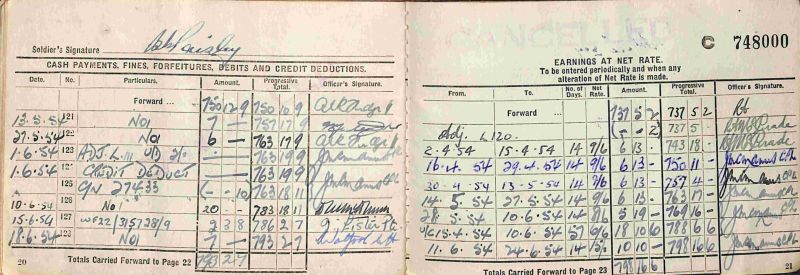 Soldier's Signature
CASH PAYMENTS, FINES, FORFEITURES, DEBITS AND CREDIT DEDUCTIONS.
Date. No. Particulars. Amount. Progressive Total. Officer's Signature.
Forward ... 750 12 9 750 10 9
13.5.54 121 No1 7 — 757 17 9
27.5.54 122 No1 6 — 763 17 9
1.6.54 123 ADJ. L.111 763 19 9
1.6.54 CREDIT DEDUCT 763 19 9
125 C/N 27433 (— — 10) 763 18 11
10.6.54 126 No1 20 — 783 18 11
15.6.54 127 WF22/315728/9 2 3 8 786 2 7
18.6.54 123 No1 7 — 793 2 7
20 Totals Carried Forward to Page 22 793 2 7
CANCELLED
C 748000
EARNINGS AT NET RATE.
To be entered periodically and when any
alteration of Net Rate is made.
From. To. No. of Days. Net Rate. Amount. Progressive Total. Officer's Signature.
Forward ... 737 5 2 737 5 2
Adj. L120. (— — 2) 737 5
2.4.54 15.4.54 14 9/6 6 13 - 743 18 -
16.4.54 29.4.54 14 9/6 6 13 - 750 11 -
30.4.54 13.5.54 14 9/6 6 13 - 757 4 -
14.5.54 27.5.54 14 9/6 6 13 - 763 17 -
28.5.54 10.6.54 14 8/6 5 19 - 769 16 -
15.4.54 10.6.54 57 6/6 18 10 6 788 6 6
11.6.54 24.6.54 14 15/- 10 10 - 798 16 6
Totals Carried Forward to Page 23 798 16 6 21